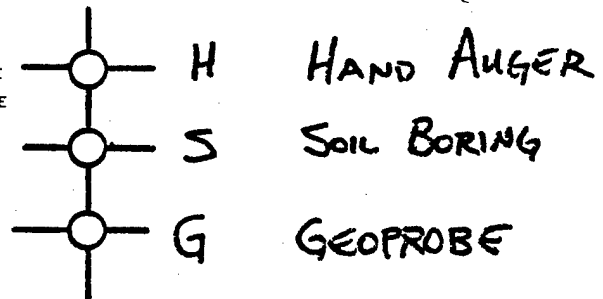 H HAND AUGER
E
S SOIL BORING
G GEOPROBE